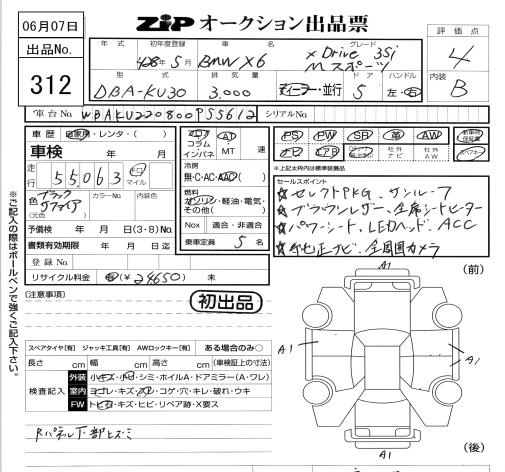 06月07日
ZIP オークション出品票
出品No.
312
評価点
4
内装
B
年式 初年度登録 車名 グレード
5月 BMW X6 xDrive 35i
Mスポーツ
型式 排気量 ドア ハンドル
DBA-KU30 3,000 ディーラー・並行 5 左・右
車台No. WBAKU220800P55612 シリアルNo.
車歴 自家用・レンタ・( )
車検
走行 55,063 キロ マイル
色 ブラックサファイア カラーNo. 内装色
(元色)
予備検 年 月 日(3・8)No.
書類有効期限 年 月 日迄
登録No.
リサイクル料金 有(¥24650) 未
フロア コラム インパネ AT・MT 速
冷房
無・C・AC・AAC( )
燃料
ガソリン・経油・電気・その他( )
Nox 適合・非適合
乗車定員 5 名
PS PW SR 革 AW 新車時保証書
ナビ エアB 社外ナビ 社外AW
※上記太枠内は標準装備品
セールスポイント
☆セレクトPKG、サンルーフ
☆ブラウンレザー、全席シートヒーター
☆パワーシート、LEDヘッド、ACC
☆純正ナビ、全周囲カメラ
※ご記入の際はボールペンで強くご記入下さい。
(注意事項)
初出品
スペアタイヤ[有] ジャッキ工具[有] AWロックキー[有] ある場合のみ○
長さ cm 幅 cm 高さ cm (車検証上の寸法)
検査記入
外装 小キズ・小凹・シミ・ホイルA・ドアミラー(A・ワレ)
室内 ヨゴレ・キズ・スレ・コゲ・穴・キレ・破れ・ウキ
FW トビ石・キズ・ヒビ・リペア跡・X要ス
Rパネル下部ヒズミ
(前)
A1
A1
A1
A1
(後)